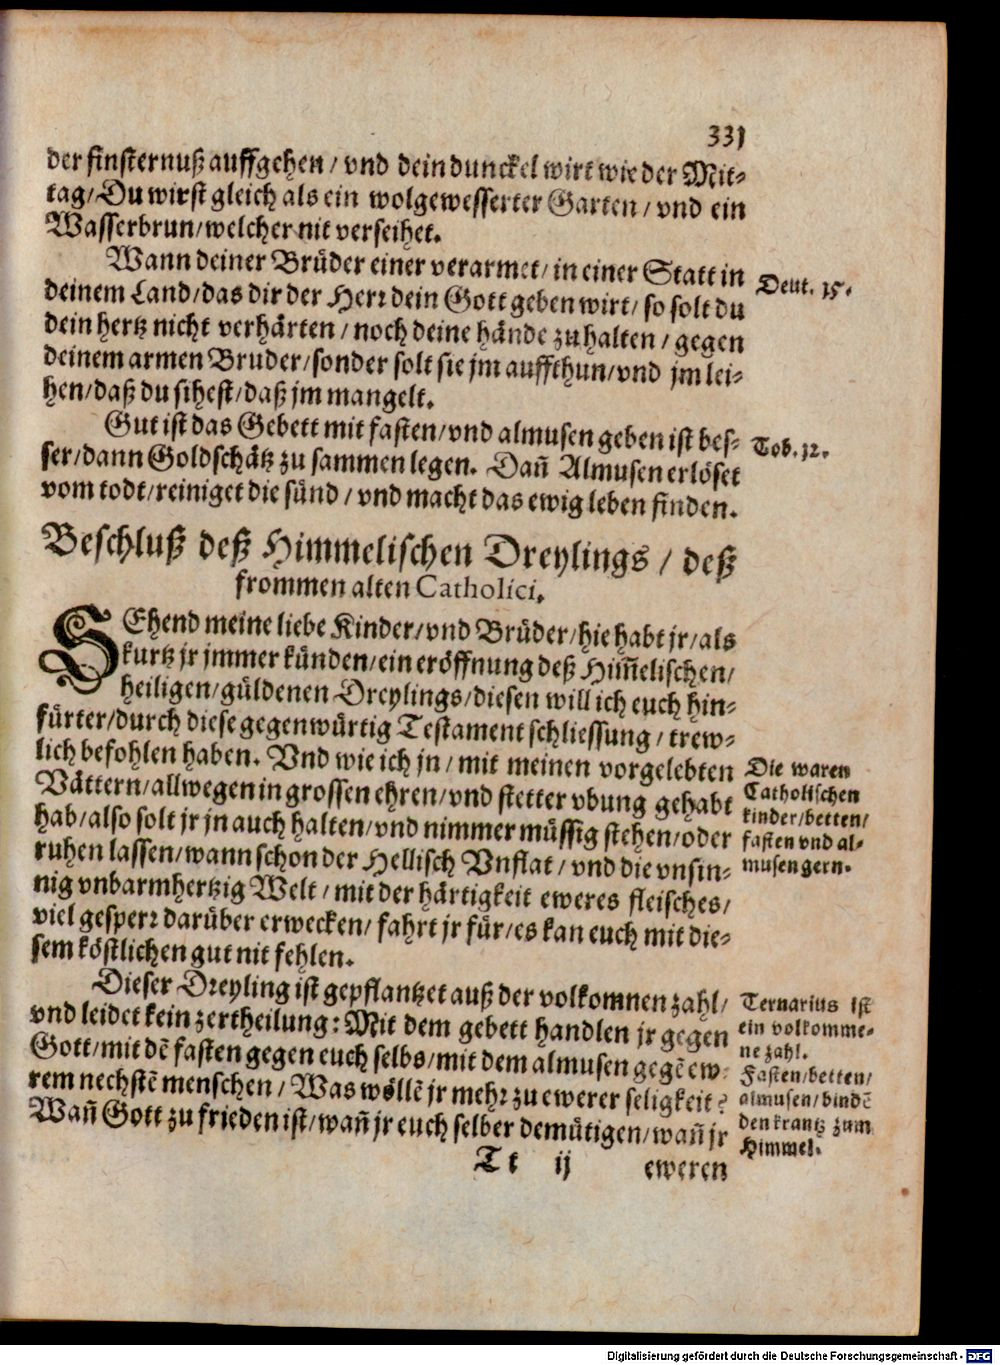 331
der finsternuß auffgehen / vnd dein dunckel wirt wie der Mit-
tag/Du wirst gleich als ein wolgewesserter Garten / vnd ein
Wasserbrun/welcher nit verseihet.
Wann deiner Brüder einer verarmet/ in einer Statt in
deinem Land/das dir der Herr dein Gott geben wirt/ so solt du
dein hertz nicht verhärten / noch deine hände zu halten / gegen
deinem armen Bruder/sonder solt sie jm auffthun/vnd jm lei-
hen/daß du sihest/daß jm mangelt.
Deut. 15.
Gut ist das Gebett mit fasten/vnd almusen geben ist bes-
ser/dann Goldschätz zu sammen legen. Dañ Almusen erlöset
vom todt/reiniget die sünd / vnd macht das ewig leben finden.
Tob. 12.
Beschluß deß Himmelischen Dreylings / deß
frommen alten Catholici.
SEhend meine liebe Kinder/vnd Brüder/hie habt jr/als
kurtz jr jmmer künden/ein eröffnung deß Him̃elischen/
heiligen/güldenen Dreylings/diesen will ich euch hin-
fürter/durch diese gegenwürtig Testament schliessung / trew-
lich befohlen haben. Vnd wie ich jn / mit meinen vorgelebten
Vättern/allwegen in grossen ehren/vnd stetter vbung gehabt
hab/also solt jr jn auch halten/vnd nimmer müssig stehen/oder
ruhen lassen/wann schon der Hellisch Vnflat / vnd die vnsin-
nig vnbarmhertzig Welt / mit der härtigkeit eweres fleisches/
viel gesperr darüber erwecken/ fahrt jr für/es kan euch mit die-
sem köstlichen gut nit fehlen.
Die waren
Catholischen
kinder/betten/
fasten vnd al-
musen gern.
Dieser Dreyling ist gepflantzet auß der volkomnen zahl/
vnd leidet kein zertheilung: Mit dem gebett handlen jr gegen
Gott/mit dẽ fasten gegen euch selbs/mit dem almusen gegẽ ew-
rem nechstẽ menschen / Was wöllẽ jr mehr zu ewerer seligkeit?
Wañ Gott zu frieden ist/wañ jr euch selber demütigen/wañ jr
Ternarius ist
ein volkomme-
ne zahl.
Fasten/betten/
almusen/bindẽ
den krantz zum
Himmel.
Tt ij eweren
Digitalisierung gefördert durch die Deutsche Forschungsgemeinschaft - DFG